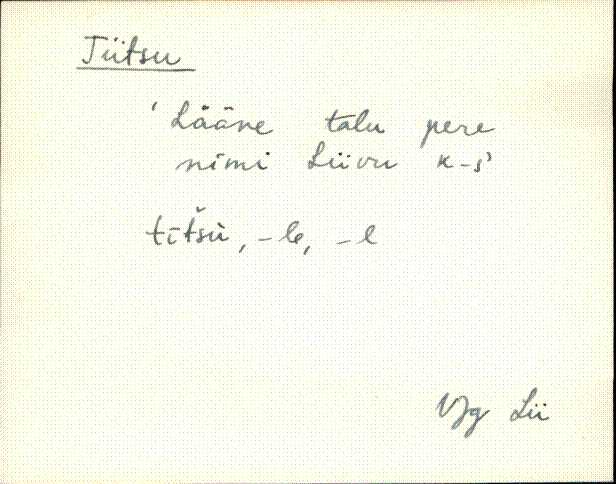 Tiitsu
'Lääne talu pere
nimi Liivu k-s'
tītšù, -le, -l
Vg Lii